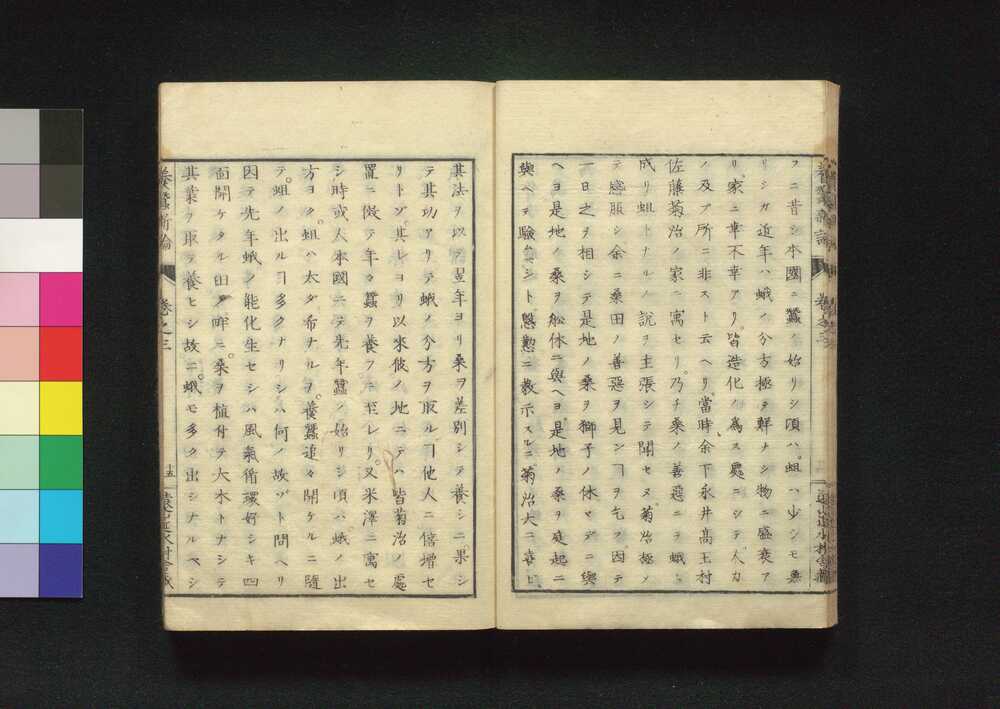 フニ昔シ本國ニ蠶ノ始リシ頃ハ。蛆ハ少シモ無
リシガ近年ハ蛾ノ分方極テ鮮ナシ物ニ盛衰ア
リ。家ニ幸不幸アリ。皆造化ノ爲ス處ニシテ人力
ノ及ブ所ニ非スト云ヘリ當時余下永井髙玉村
佐藤菊治ノ家ニ寓セリ。乃チ桑ノ善惡ニテ蛾ト
成リ蛆トナルノ説ヲ主張シテ聞セヌ菊治極メ
テ感服シ余ニ桑田ノ善惡ヲ見ンヿヲ乞フ因テ
一日之ヲ相シテ是地ノ桑ヲ獅子ノ休マデニ與
ヘヨ是地ノ桑ヲ舩休ニ與ヘヨ是地ノ桑ヲ庭起ニ
與ヘテ驗ムベシト懇懃ニ教示スルニ菊治大ニ喜ヒ
其法ヲ以テ翌年ヨリ桑ヲ差別シテ養シニ果シ
テ其功アリテ蛾ノ分方ヲ取ルヿ他人ニ倍增セ
リトゾ。其レヨリ以來彼ノ地ニテハ皆菊治ノ處
置ニ傚テ年々蠶ヲ養フニ至レリ。又米澤ニ寓セ
シ時或人本國ニテ先年蠶ノ始リシ頃ハ蛾ノ出
方ヨク。蛆ハ太タ希ナルヲ。養蠶追々開ケルニ隨
テ。蛆ノ出ルヿ多クナリシハ何ノ故ゾト問ヘリ
因テ先年蛾ノ能化生セシハ風氣循環好シキ四
面開ケタル田ノ畔ニ。桑ヲ植付テ大木トナシテ
其葉ヲ取テ養ヒシ故ニ。蛾モ多ク出シナルベシ
養蠶新論
卷之三
十五